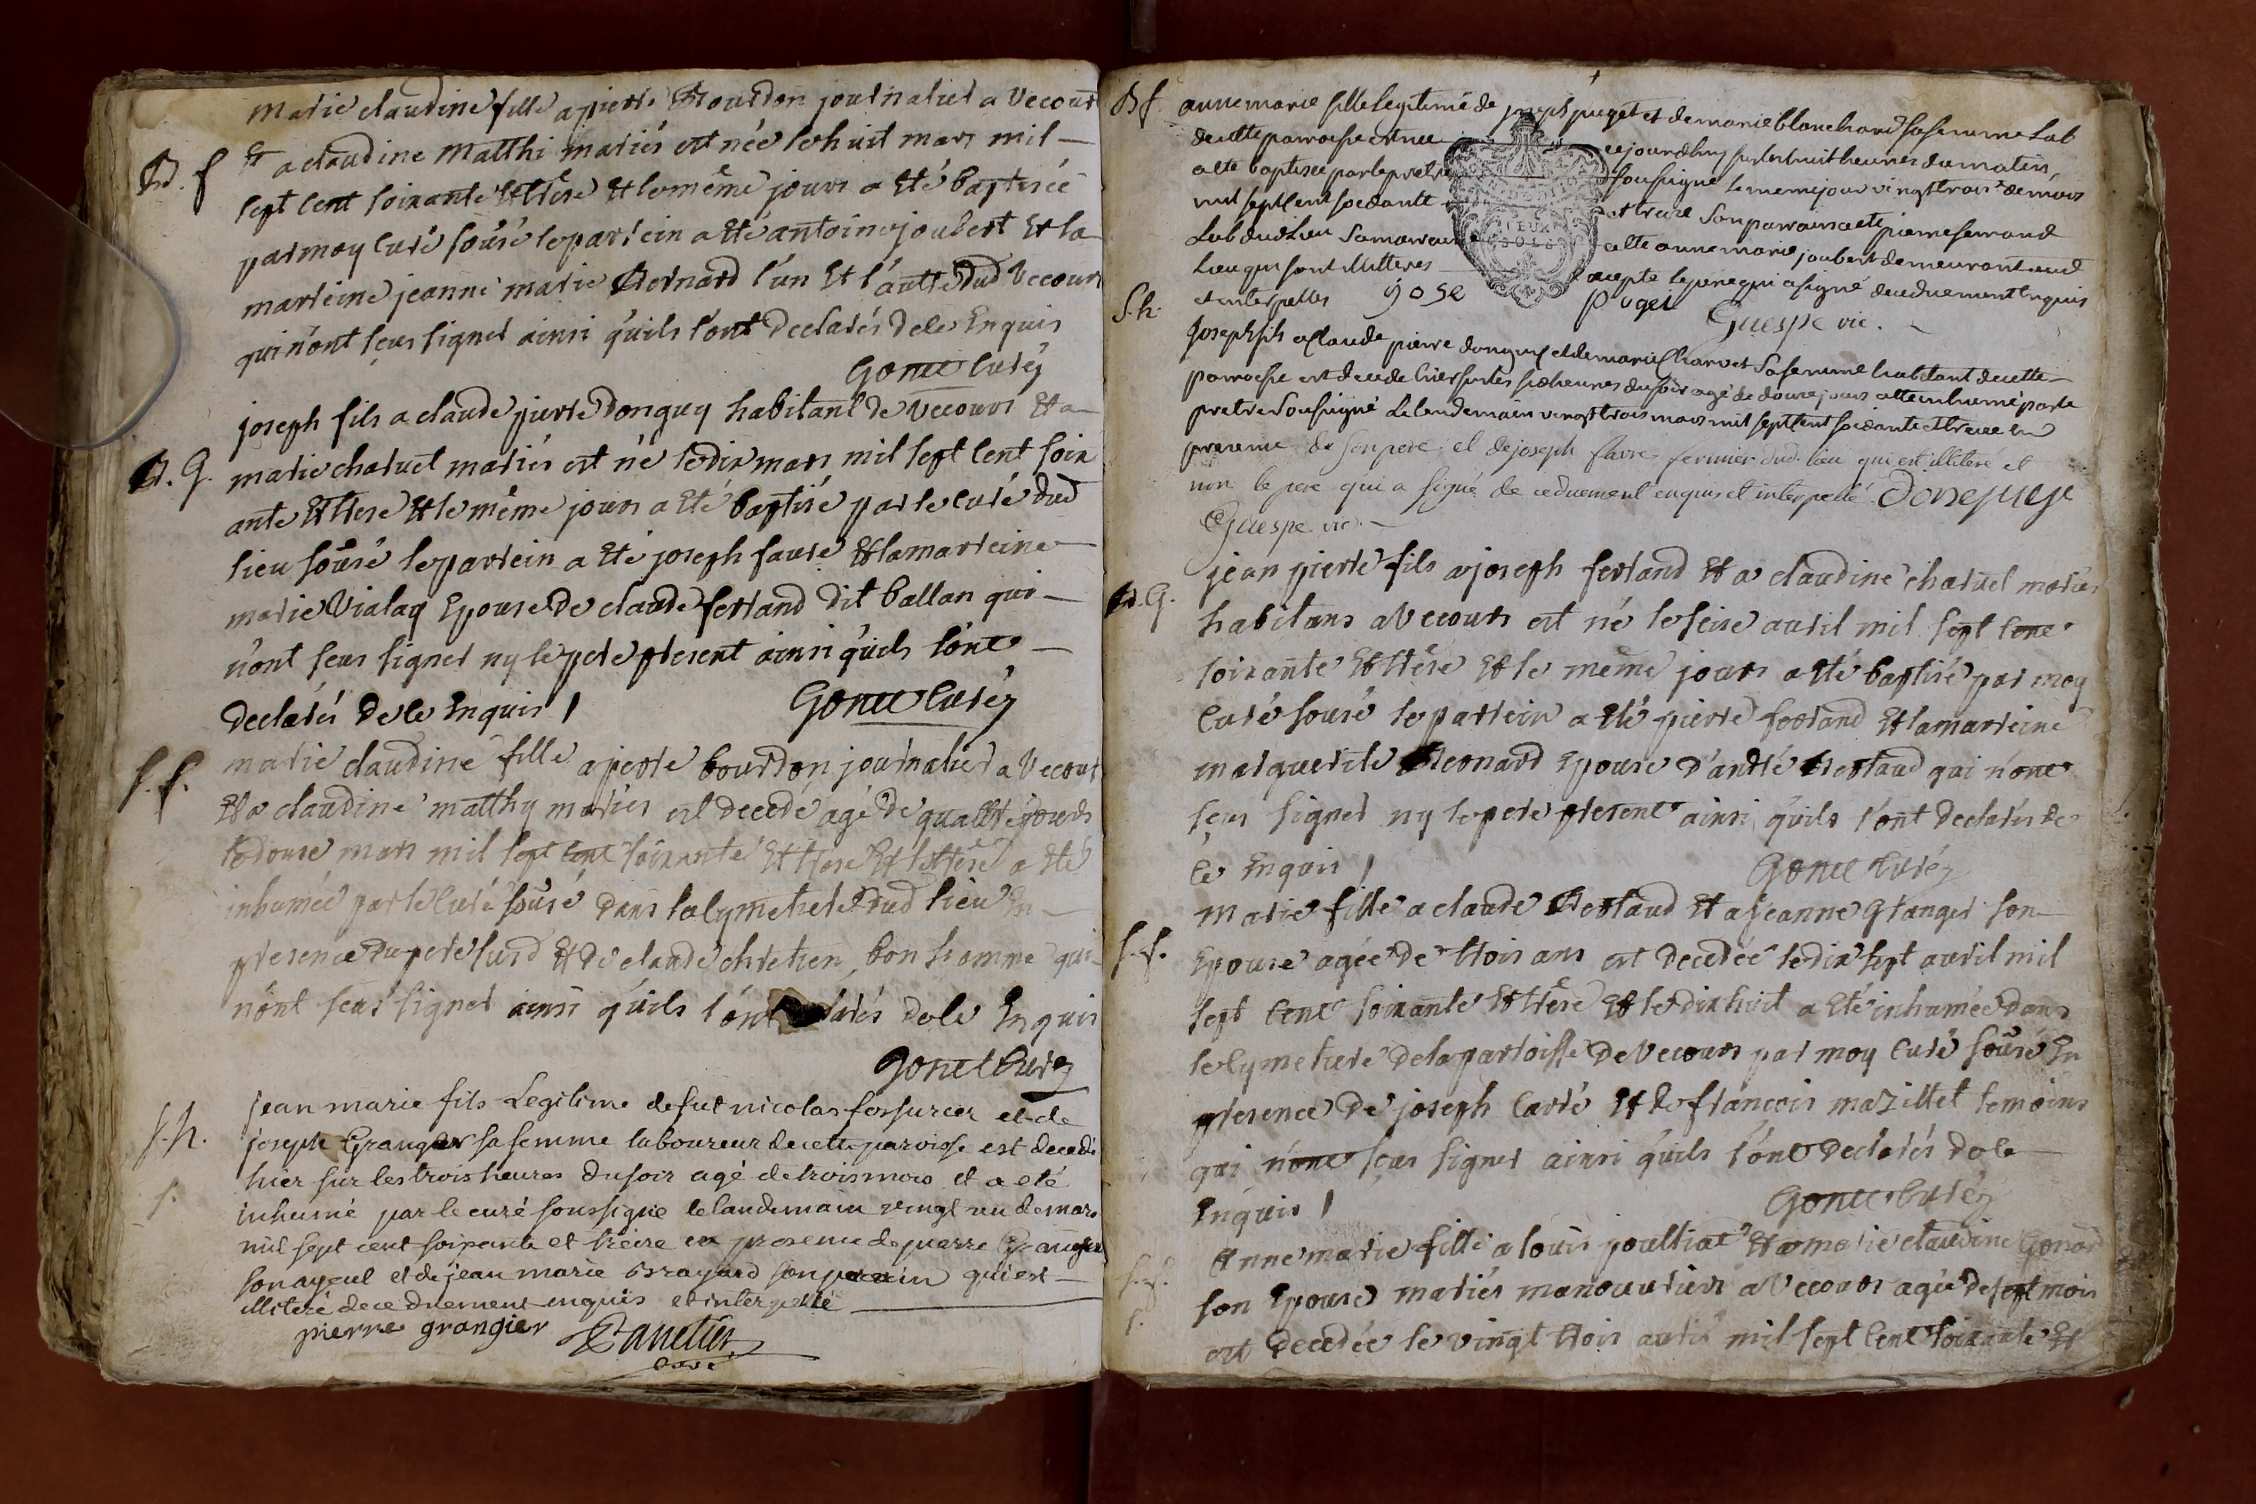 marie claudine fille a pierre Bourdon journalier a Vecour
B. f Et a claudine Matthi mariés est née le huit mars mil
sept cent soixante Et trese Et le même jours a Eté baptisée
par moy curé sousé le parrein a Eté antoine joubert Et la
marreine jeanne marie Bernard l'un Et l'autre dud Vecours
qui n'ont seus signer ainsi qu'ils l'ont declarés de ce Enquis
Gonet Curéz
joseph fils a claude pierre donguy habitant de Vecours Et a
B. G. marie charvet mariés est né le dix mars mil sept cent soix
ante Et trese Et le même jours a Eté baptisé par le curé dud
lieu sousé le parrein a Eté joseph faure Et la marreine
marie Vialay Epouse de claude ferrand dit ballan qui
n'ont seus signer ny le pere present ainsi qu'ils l'ont
declarés de ce Enquis
Gonet Curéz
S. f. marie claudine fille a pierre bourdon journalier a Vecour
Et a claudine matthy mariés est decedé agé de quattre jours
le douse mars mil sept cent soixante Et trese Et le trese a Eté
inhumée par le curé sousé dans le cymetiere dud lieu En
presence du pere susd Et de claude chretien bon homme qui
n'ont seus signer ainsi qu'ils l'ont declarés de ce Enquis
Gonet Curéz
S. h. jean marie fils Legitime de fut nicolas fossurier et de
joseph Granger sa femme laboureur de cette paroisse est decedé
hier sur les trois heures du soir agé de trois mois et a eté
S. inhumé par le curé soussigne le landemain vingt un de mars
mil sept cent soixante et treize en presence de pierre Grangier
son ayeul et de jean marie Brayard son parrain qui est
illiteré de ce duement enquis et interpellé
pierre grangier
curé
B f. anne marie fille legitime de joseph puget et de marie blanchard sa femme Lab
de cette paroisse est nee cejourdhuy sur les huit heures du matin
a ete baptisee par le pretre soussigne le meme jour vingt trois de mars
mil sept cent soixante et treize son parrain a ete pierre ferrand
Lab dud Lieu sa marraine a ete anne marie joubert demeurant aud
Lieu qui sont illiteres excepte le pere qui a signé de ce duement enquis
et interpelles gose puget
Guespe vic.
S. h. joseph fils a Claude pierre donguy et de marie Charvet sa femme habitant de cette
paroisse est decede hier sur les six heures du soir agé de douze jours a ete inhumé par le
pretre soussigné le landemain vingt trois mars mil sept cent soixante et treize en
presence de son pere et de joseph favre fermier dud. lieu qui est illiteré et
non le pere qui a signé de ce duement enquis et interpellé
Guespe vic.
jean pierre fils a joseph ferrand Et a claudine charvet mariés
B. G. habitans a Vecours est né le seise avril mil sept cent
soixante Et trese Et le même jours a Eté baptisé par moy
Curé sousé le parrein a Eté pierre ferrand Et la marreine
marguerite Bernard Epouse d'andré Bertaud qui n'ont
seus signer ny le pere present ainsi qu'ils l'ont declarés de
ce Enquis
Gonet Curéz
Marie fille a claude Bertaud Et a jeanne Granger son
S. f. Epouse agée de trois ans est decedée le dix sept avril mil
sept cent soixante Et trese Et le dix huit a Eté inhumée dans
le cymetiere de la parroisse de Vecours par moy Curé sousé En
presence de joseph Carré Et de francois mazillet temoins
qui n'ont seus signer ainsi qu'ils l'ont declarés de ce
Enquis
Gonet Curéz
S. f. Anne marie fille a louis poulliat Et a marie claudine Gonod
son Epouse mariés manouvriers a Vecours agée de sept mois
S. est decedée le vingt trois avril mil sept cent soixante Et